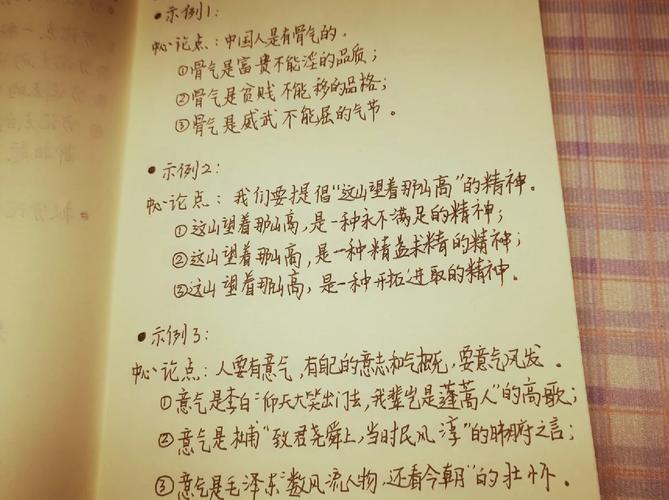 •示例1:
中心论点:中国人是有骨气的。
①骨气是富贵不能淫的品质;
②骨气是贫贱不能移的品格;
③骨气是威武不能屈的气节。
•示例2:
中心论点:我们要提倡“这山望着那山高”的精神。
①这山望着那山高,是一种永不满足的精神;
②这山望着那山高,是一种精益求精的精神;
③这山望着那山高,是一种开拓进取的精神.
•示例3:
中心论点:人要有意气,有自己的意志和气概,要意气风发.
①意气是李白“仰天大笑出门去,我辈岂是蓬蒿人”的高歌;
②意气是杜甫“致君尧舜上,当时民风淳”的肺腑之言;
③意气是毛泽东“数风流人物,还看今朝”的壮怀.